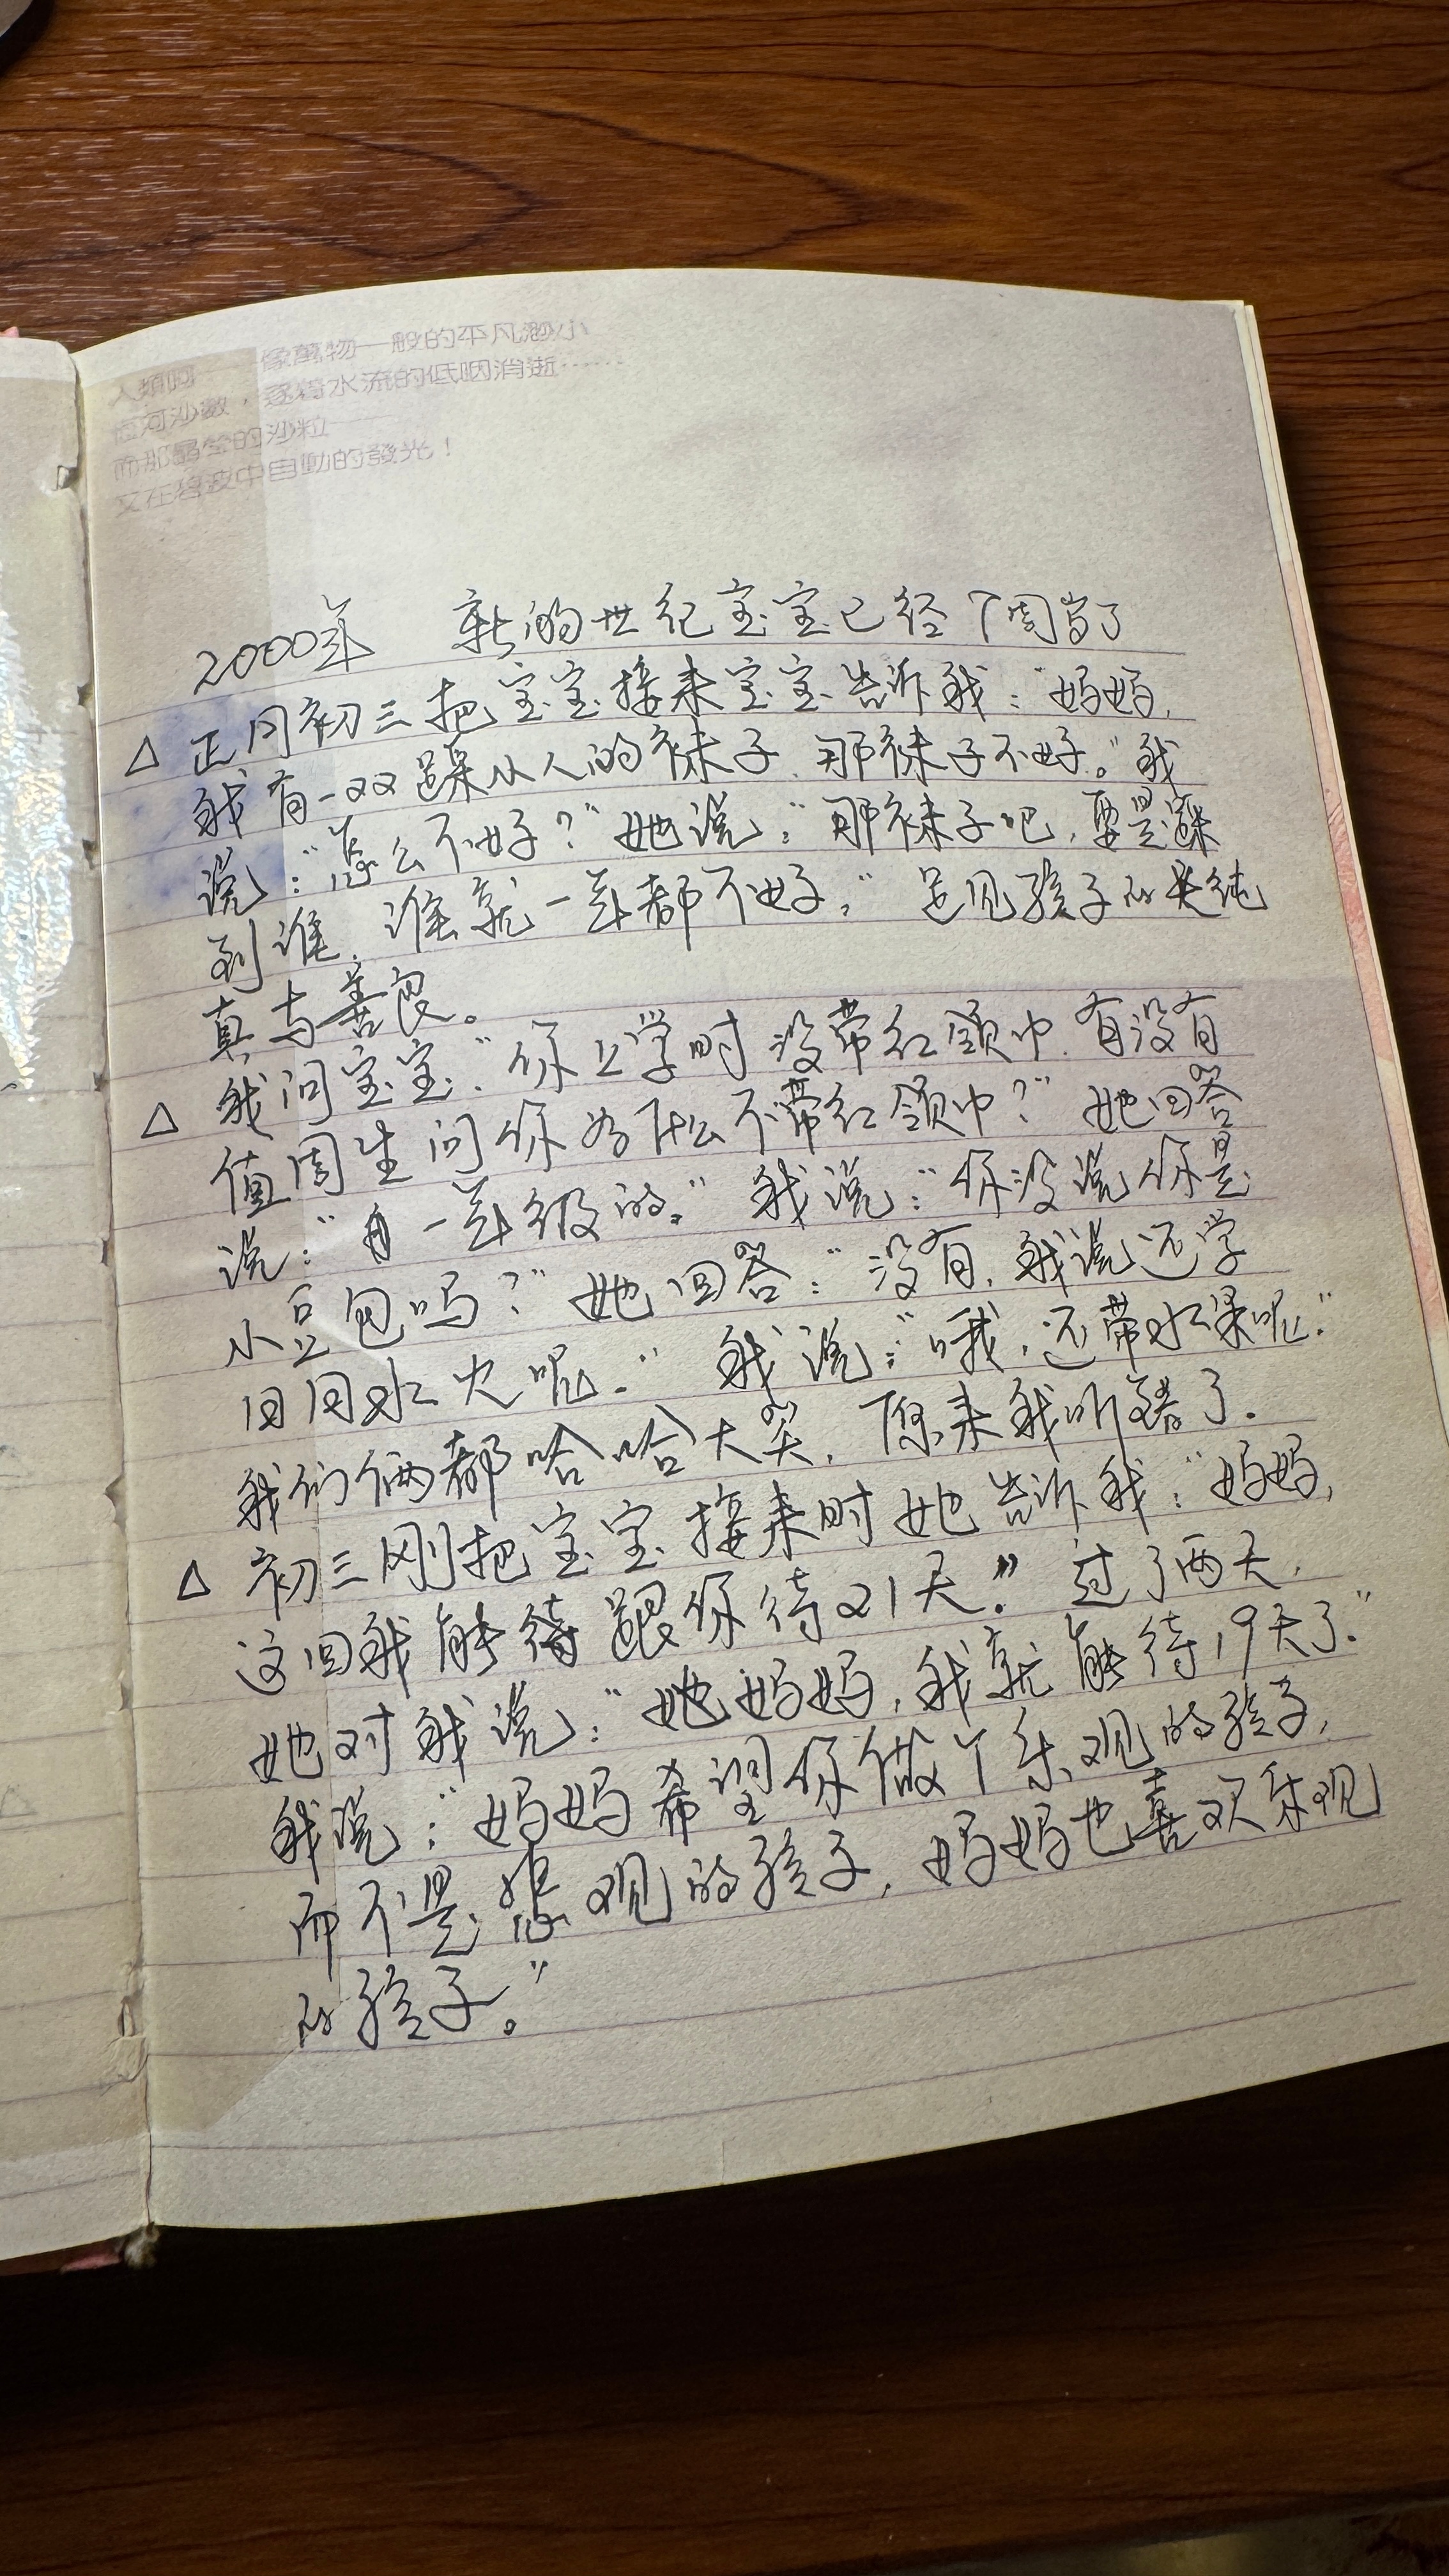 人類啊——像萬物一般的平凡渺小
恆河沙數，逐着水流的低咽消逝……
而那晶瑩的沙粒——
又在碧波中自動的發光！
2000年 新的世纪宝宝已经7周岁了
△ 正月初三把宝宝接来宝宝告诉我：“妈妈，
我有一双踩小人的袜子，那袜子不好。”我
说：“怎么不好？”她说：“那袜子吧，要是踩
到谁，谁就一年都不好。”足见孩子的天纯
真与善良。
△ 我问宝宝：“你上学时没带红领巾，有没有
值周生问你为什么不带红领巾？”她回答
说：“一年级的。”我说：“你没说你是
小豆包吗？”她回答：“没有，我说还学
日月水火呢。”我说：“哦，还带水果呢。”
我们俩都哈哈大笑，原来我听错了。
△ 初三刚把宝宝接来时她告诉我：“妈妈，
这回我能待跟你待21天。”过了两天，
她对我说：“她妈妈，我就能待19天了。”
我说：“妈妈希望你做个乐观的孩子，
而不是悲观的孩子，妈妈也喜欢乐观
的孩子。”